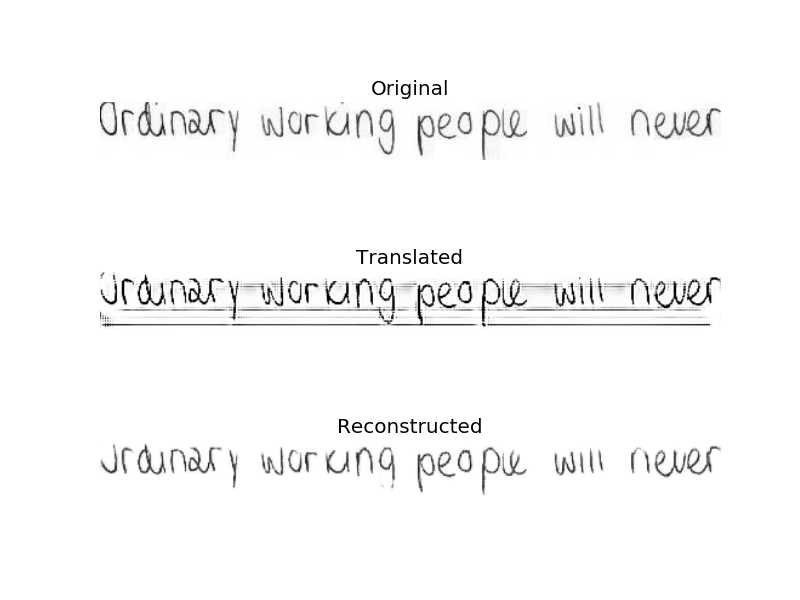 Original
Ordinary working people will never
Translated
Ordinary working people will never
Reconstructed
Ordinary working people will never